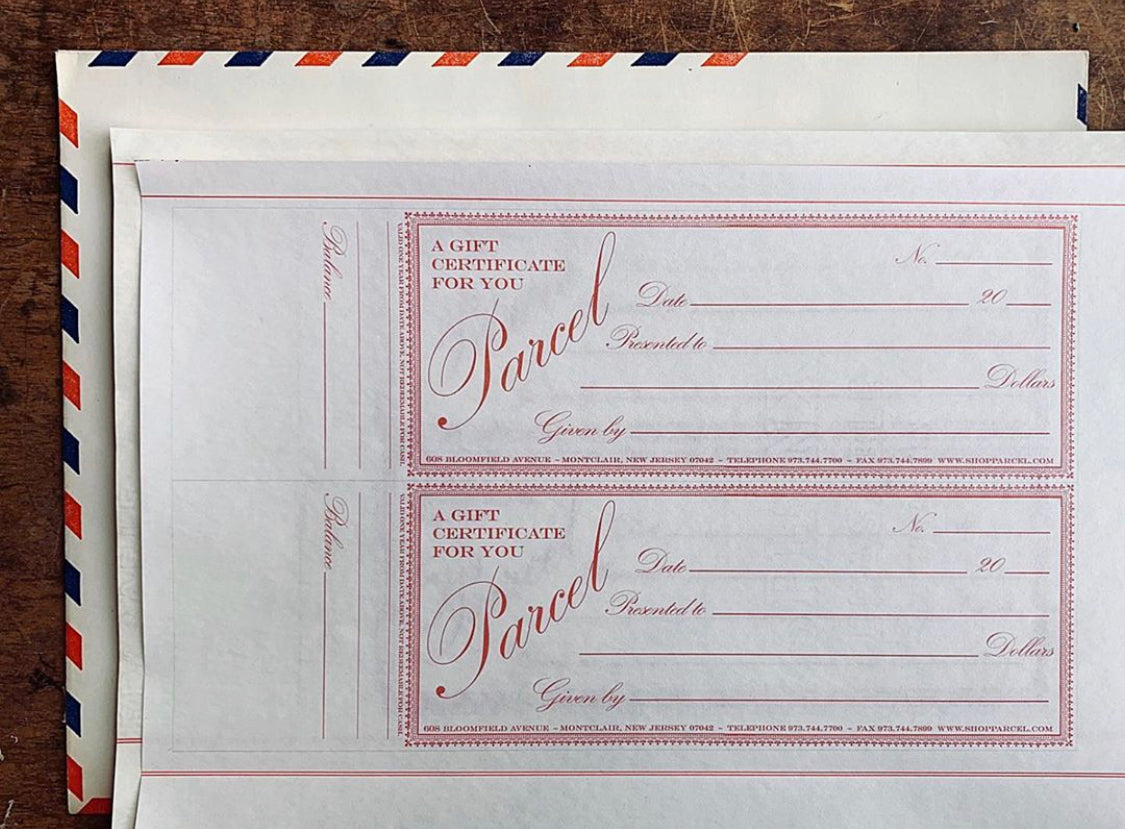 A GIFT
CERTIFICATE
FOR YOU
Parcel
No.
Date 20
Presented to
Dollars
Given by
608 BLOOMFIELD AVENUE ~ MONTCLAIR, NEW JERSEY 07042 ~ TELEPHONE 973.744.7700 ~ FAX 973.744.7899 WWW.SHOPPARCEL.COM
VALID ONE YEAR FROM DATE ABOVE. NOT REDEEMABLE FOR CASH.
Balance
A GIFT
CERTIFICATE
FOR YOU
Parcel
No.
Date 20
Presented to
Dollars
Given by
608 BLOOMFIELD AVENUE ~ MONTCLAIR, NEW JERSEY 07042 ~ TELEPHONE 973.744.7700 ~ FAX 973.744.7899 WWW.SHOPPARCEL.COM
VALID ONE YEAR FROM DATE ABOVE. NOT REDEEMABLE FOR CASH.
Balance